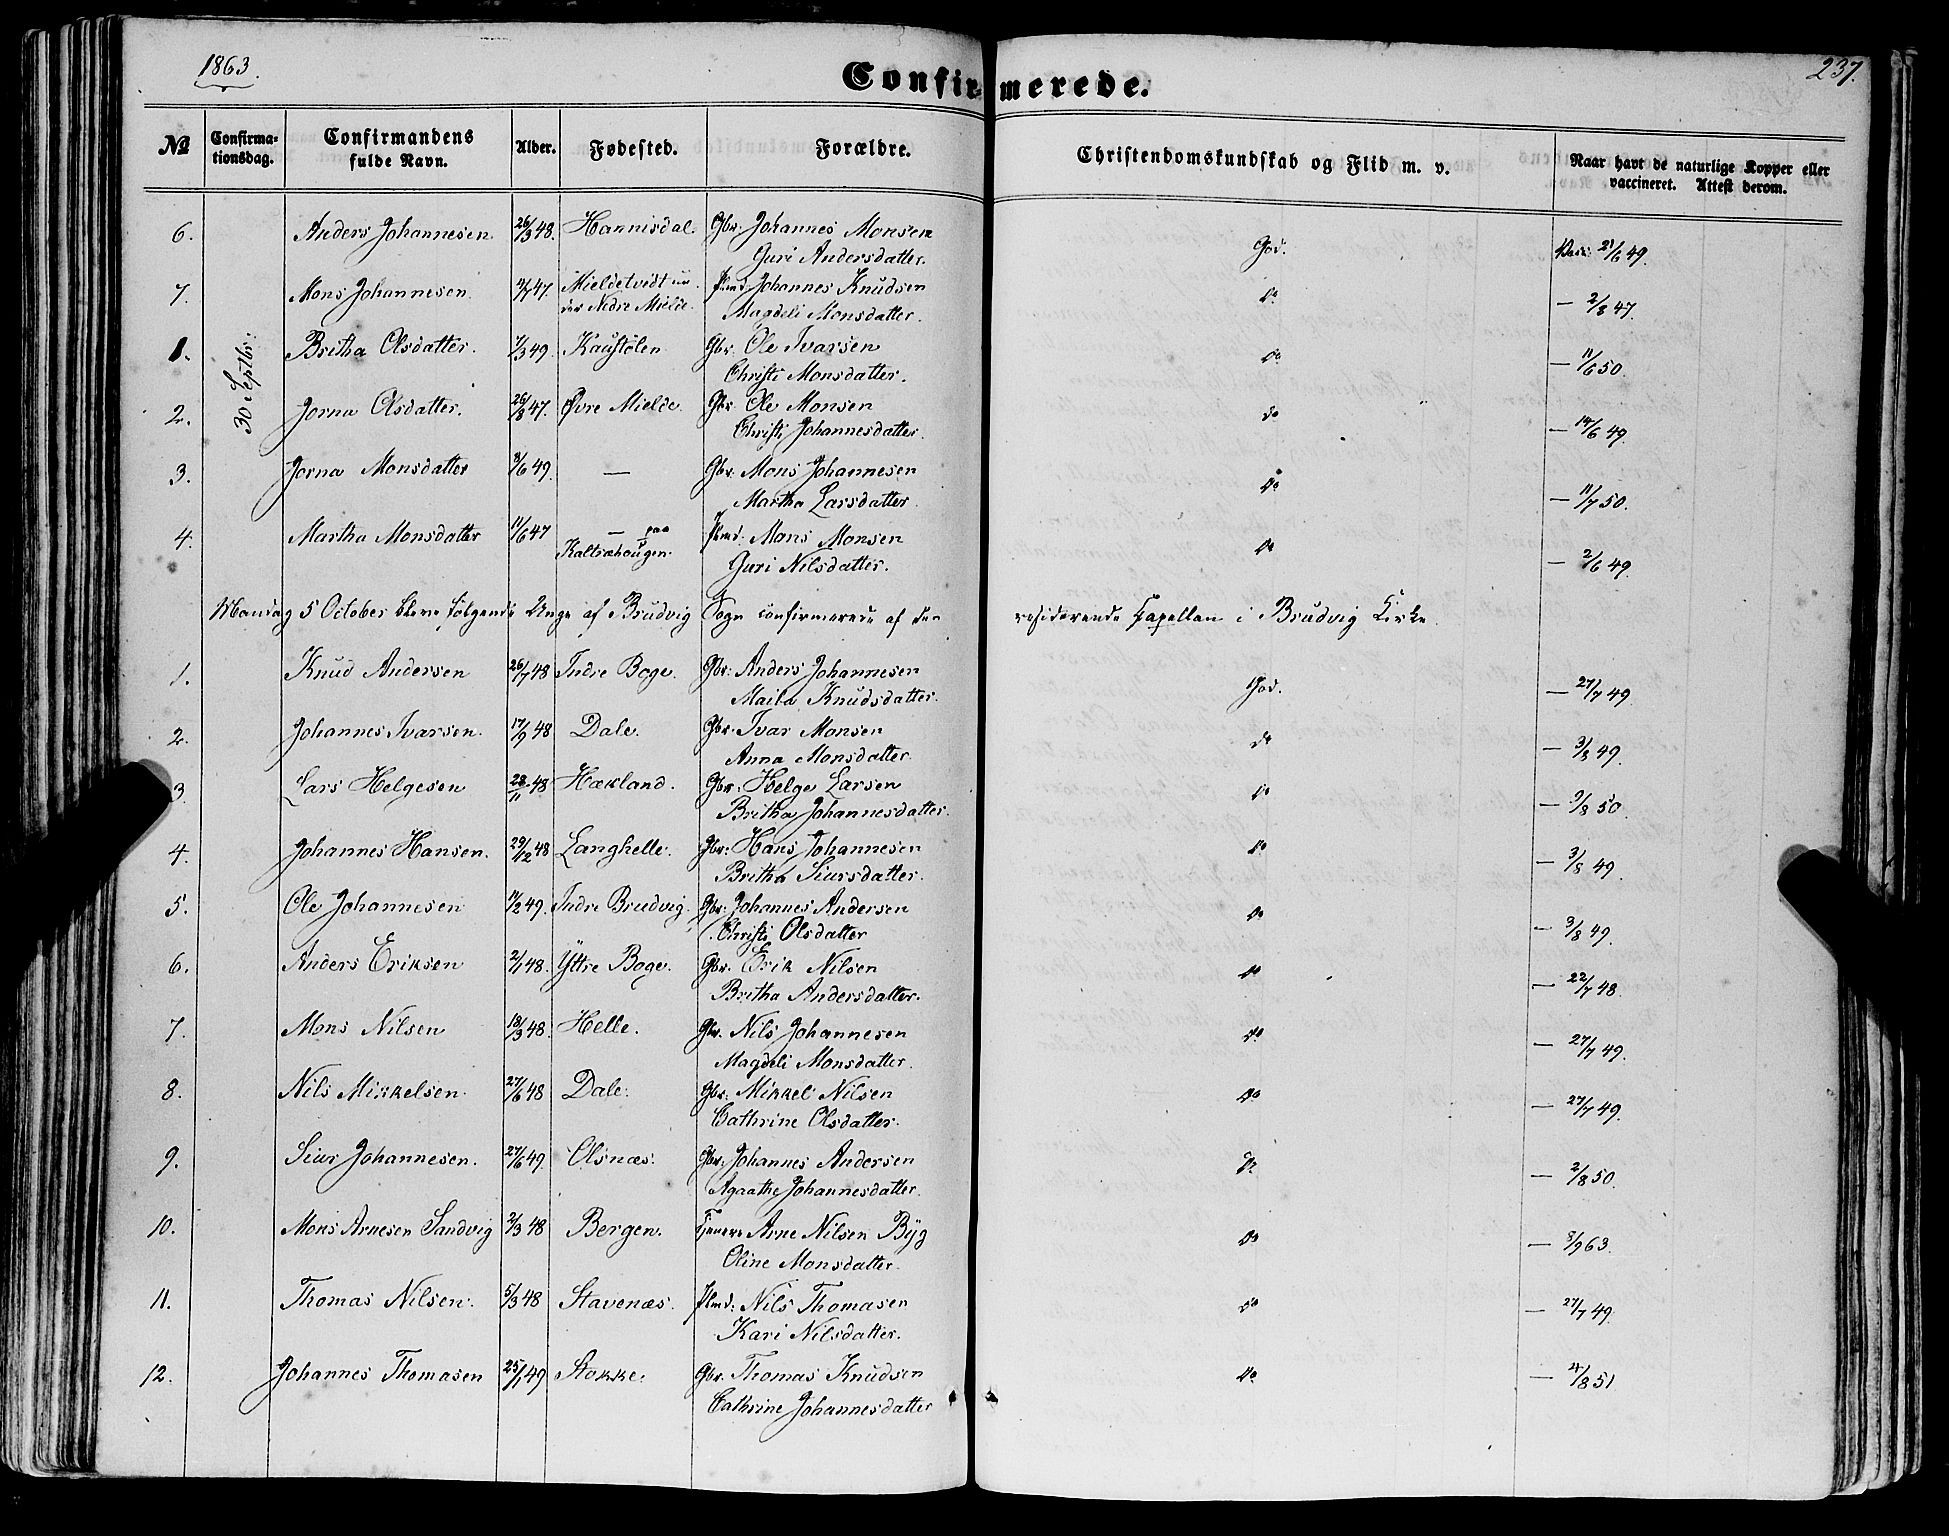 1863.
237.
Confirmerede.
№ Confirma-tionsdag. Confirmandens fulde Navn. Alder. Fødested. Forældre. Christendomskundskab og Flid m. v. Naar havt de naturlige Kopper eller vaccineret. Attest derom.
30 Septbr:
6. Anders Johannesen. 26/3 48. Hannisdal. Gbr. Johannes Monsen God. Vacc: 21/6 49.
Guri Andersdatter.
7. Mons Johannesen. 11/7 47. Mieldetvedt un- Plmd. Johannes Knudsen do — 2/8 47.
der Nedre Mielde. Magdeli Monsdatter.
1. Britha Olsdatter. 7/3 49 Kaustølen Gbr. Ole Ivarsen do — 11/6 50.
Christi Monsdatter.
2. Jorna Olsdatter. 26/8 47. Øvre Mielde. Gbr. Ole Monsen do — 14/6 49.
Christi Johannesdatter.
3. Jorna Monsdatter 8/6 49. — Gbr. Mons Johannesen do — 11/7 50.
Martha Larsdatter.
4. Martha Monsdatter 11/6 47 — paa Plmd. Mons Monsen do — 2/6 49.
Kaltræhougen. Guri Nilsdatter.
Mandag 5 October bleve følgende Unge af Brudvig Sogn confirmerede af den residerende Capellan i Brudvig Kirke.
1. Knud Andersen 26/7 48 Indre Boge. Gbr: Anders Johannesen God. — 27/7 49
Maila Knudsdatter.
2. Johannes Ivarsen. 17/9 48 Dale. Gbr. Ivar Monsen do — 3/8 49.
Anna Monsdatter.
3. Lars Helgesen 28/11 48 Hækland. Gbr: Helge Larsen do — 9/8 50.
Britha Johannesdatter.
4. Johannes Hansen. 29/12 48 Langhelle. Gbr: Hans Johannesen do — 3/8 49.
Britha Siursdatter.
5. Ole Johannesen 11/2 49. Indre Brudvig. Gbr: Johannes Andersen do — 3/8 49.
Christi Olsdatter
6. Anders Eriksen 2/1 48. Yttre Boge. Gbr. Erik Nilsen do — 22/7 48.
Britha Andersdatter.
7. Mons Nilsen 18/3 48. Helle. Gbr. Nils Johannesen do — 27/7 49.
Magdeli Monsdatter.
8. Nils Mikkelsen. 27/6 48 Dale. Gbr: Mikkel Nilsen do — 27/7 49.
Cathrine Olsdatter.
9. Siur Johannesen. 27/6 49. Olsnæs. Gbr. Johannes Andersen do — 2/8 50.
Agaathe Johannesdatter.
10. Mons Arnesen Sandvig 2/3 48 Bergen. Arne Nilsen Byg do — 3/9 63.
Oline Monsdatter.
11. Thomas Nilsen. 5/3 48 Stavenæs. Plmd: Nils Thomasen do — 27/7 49.
Kari Nilsdatter.
12. Johannes Thomasen 25/1 49 Stokke. Gbr. Thomas Knudsen do — 4/8 51
Cathrine Johannesdatter